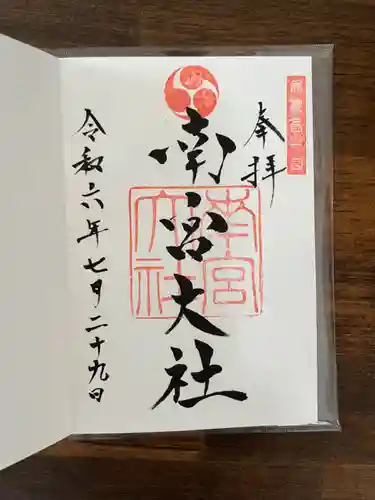 奉拝
南宮大社
南宮
大社
令和六年七月二十九日